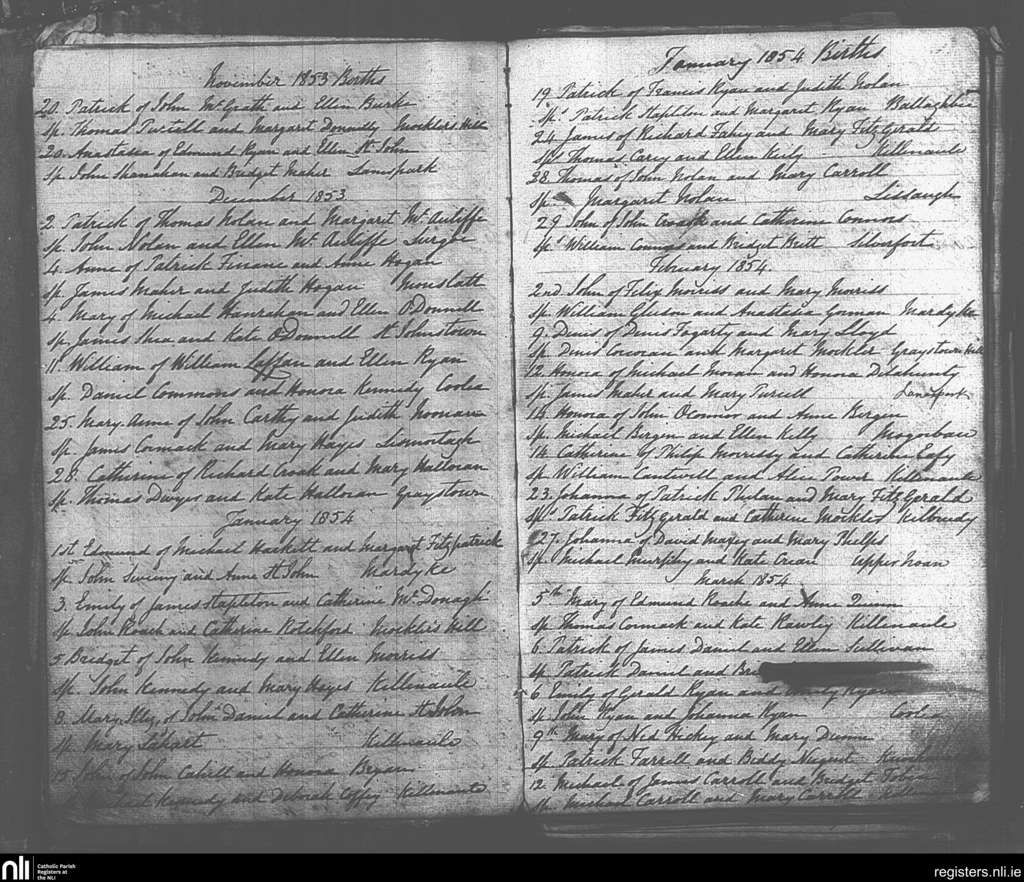 November 1853 Births
20. Patrick of John McGrath and Ellen Burke
Sp. Thomas Pursell and Margaret Donnilly Mocklers Hill
20. Anastasia of Edmund Ryan and Ellen St John
Sp. John Shanahan and Bridget Maher Lanespark
December 1853
2. Patrick of Thomas Nolan and Margaret McAuliffe
Sp. John Nolan and Ellen McAuliffe Lurgoe
4. Anne of Patrick Finane and Anne Hogan
Sp. James Maher and Judith Hogan Monslatt
4 Mary of Michael Hanrahan and Ellen O'Donnell
Sp. James Shea and Kate O'Donnell St Johnstown
11. William of William Laffan and Ellen Ryan
Sp. Daniel Commons and Honora Kennedy Coolea
25. Mary Anne of John Carthy and Judith Noonan
Sp. James Cormack and Mary Hayes Lismortagh
28. Catherine of Richard Croak and Mary Halloran
Sp. Thomas Dwyer and Kate Halloran Graystown
January 1854
1st Edmund of Michael Hackett and Margaret Fitzpatrick
Sp. John Swiney and Anne St John Mardyke
3. Emily of James Stapleton and Catherine McDonagh
Sp. John Roach and Catherine Rotchford Mocklers Hill
5 Bridget of John Kennedy and Ellen Morriss
Sp. John Kennedy and Mary Hayes Killenaule
8. Mary of John Daniel and Catherine St John
Sp. Mary Killenaule
15 John of John Cahill and Honora Bryan
Michael Kennedy and Deborah Coffey Killenaule
January 1854 Births
19 Patrick of Francis Ryan and Judith Nolan
Sp. Patrick Stapleton and Margaret Ryan
24 James of Richard Fahey and Mary FitzGerald
Sps Thomas Carey and Ellen Keily Killenaule
28 Thomas of John Nolan and Mary Carroll
Sp. Margaret Nolan Lissaugh
29 John of John Croak and Catherine Connors
Sps William and Bridget Brett Silverfort
February 1854.
2nd John of Felix Morriss and Mary Morriss
Sp. William Gleeson and Anastasia Gorman Mardyke
9 Denis of Denis Fogarty and Mary Lloyd
Sp. Denis Corcoran and Margaret Mockler Graystown
12. Honora of Michael Moran and Honora Delahunty
Sp. James Maher and Mary Pursell Lanespark
14 Honora of John OConnor and Anne Bergin
Sp. Michael Bergin and Ellen Kelly Mogorban
14 Catherine of Philip Morrisby and Catherine
Sp. William Cantwell and Alice Power Killenaule
23. Johanna of Patrick Phelan and Mary FitzGerald
Sps Patrick FitzGerald and Catherine Mockler Kilbreedy
27. Johanna of David and Mary Phelps
Sp. Michael Murphy and Kate Crean Upper Noan
March 1854
5th Mary of Edmund Roache and Anne Quinn
Sp. Thomas Cormack and Kate Rawley Killenaule
6. Patrick of James Daniel and Ellen Sullivan
Sp. Patrick Daniel and
6 Emily of Gerald Ryan and Ryan
Sp John Ryan and Johanna Ryan Coolea
9th Mary of Ned Hickey and Mary Dunne
Sp. Patrick Farrell and Biddy Nugent
12 Michael of James Carroll and Bridget Tobin
Sp. Michael Carroll and Mary Carroll
nli
Catholic Parish
Registers at
the NLI
registers.nli.ie